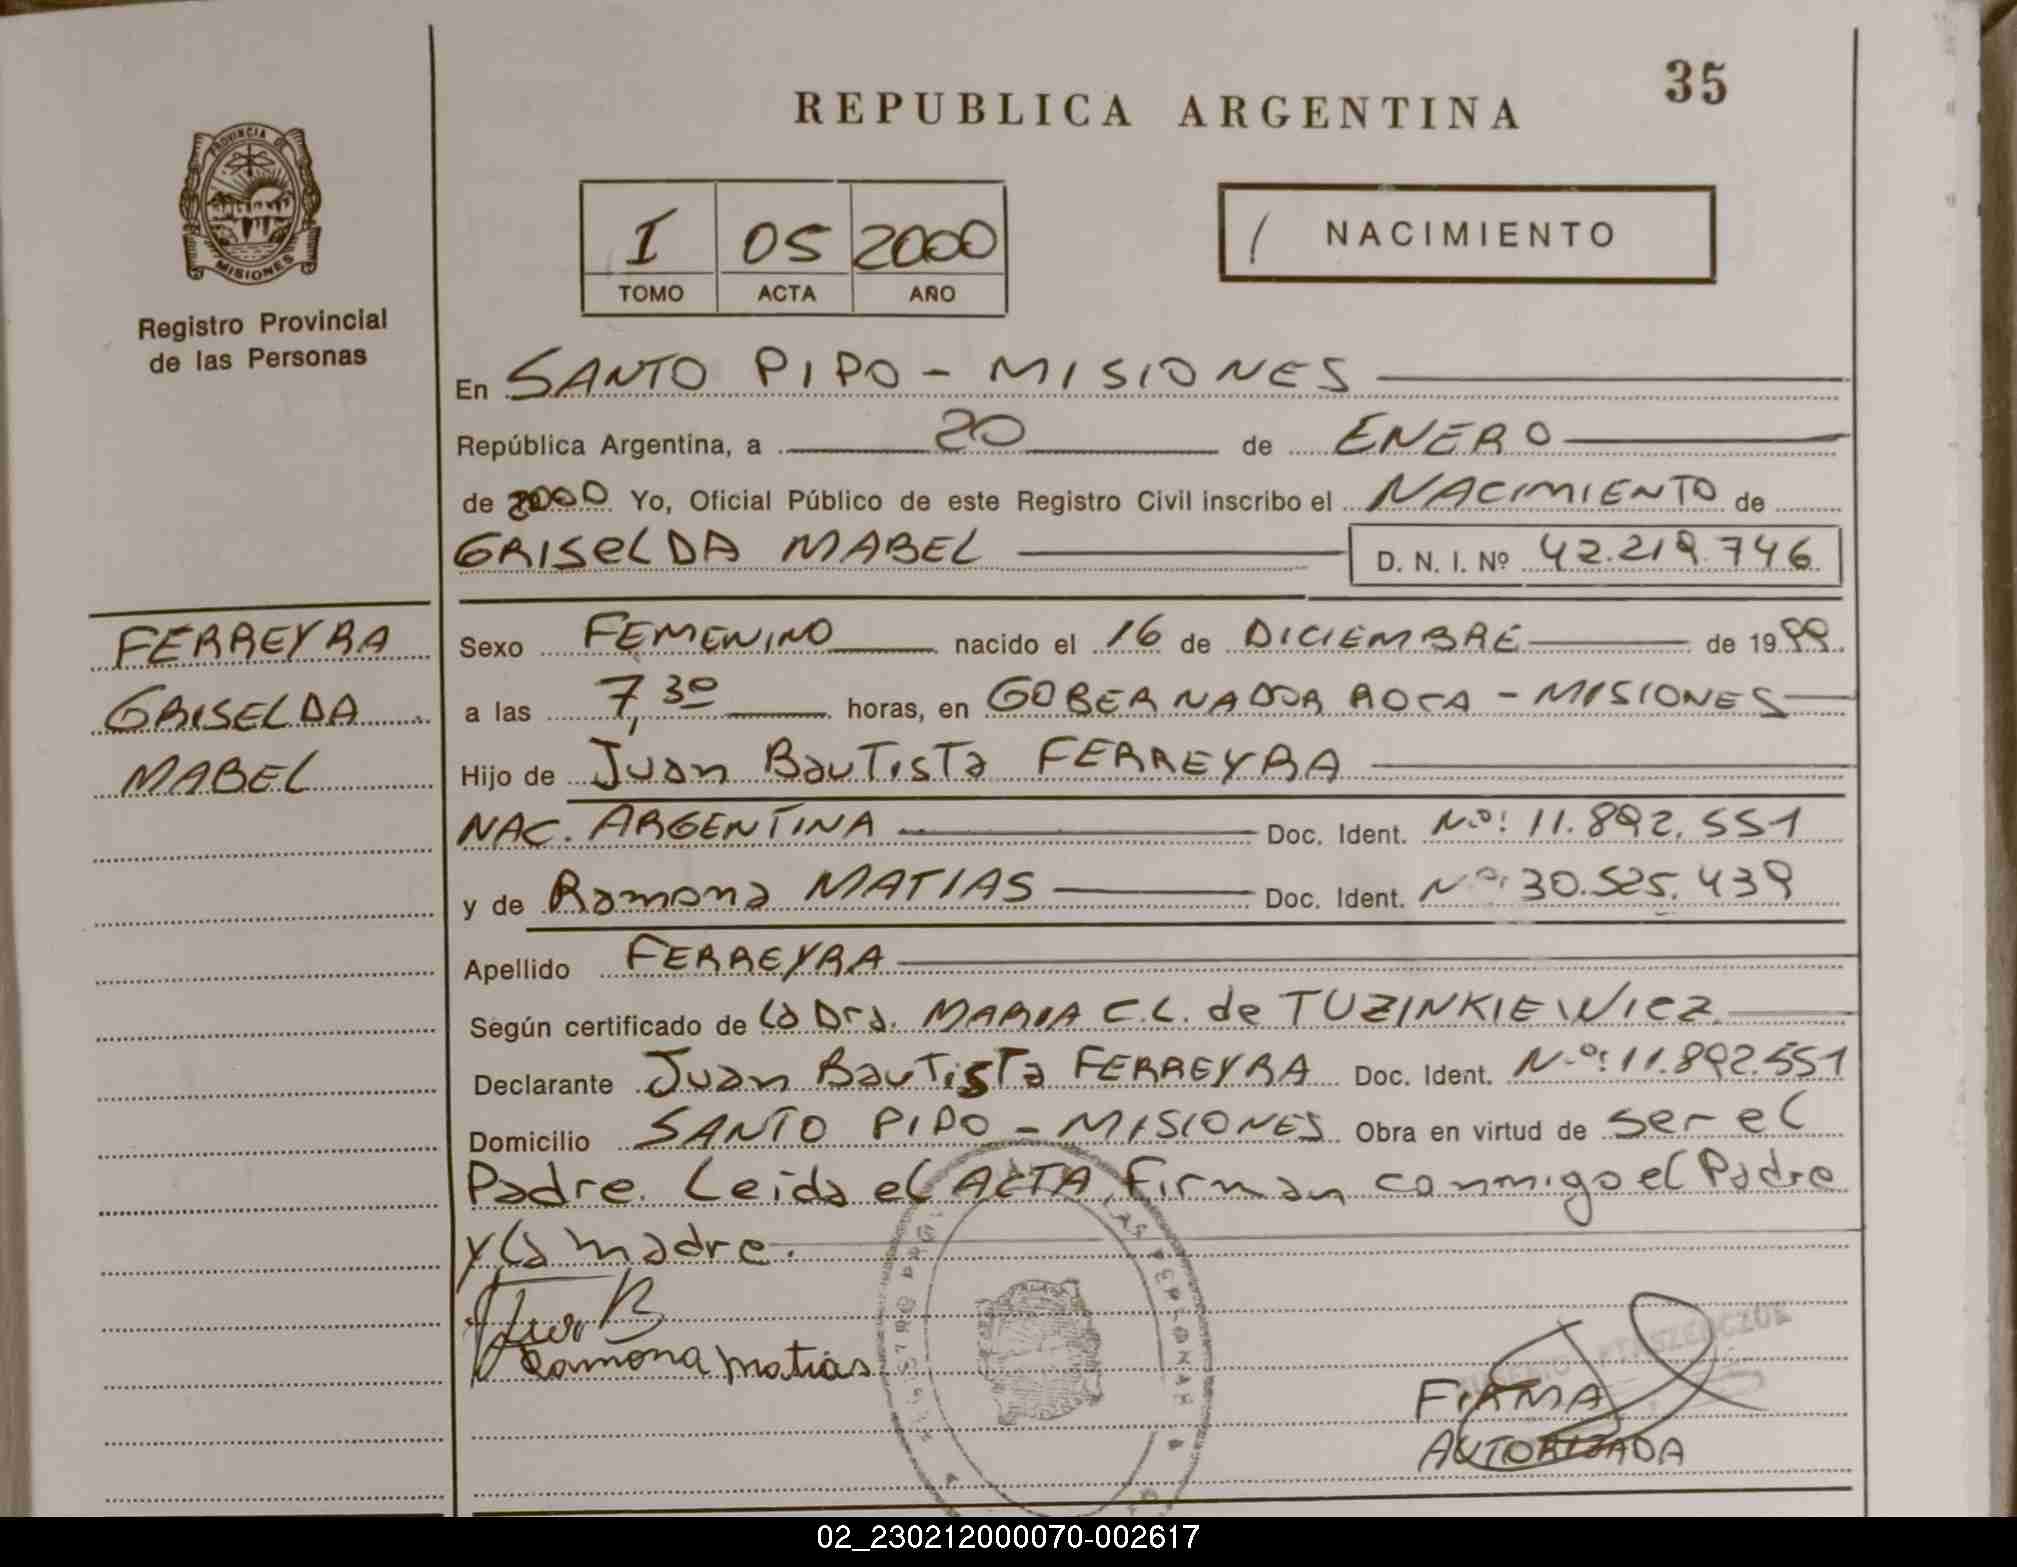 35
REPUBLICA ARGENTINA
PROVINCIA DE
MISIONES
Registro Provincial
de las Personas
I 05 2000
TOMO ACTA AÑO
NACIMIENTO
En SANTO PIPO - MISIONES
República Argentina, a 20 de ENERO
de 2000 Yo, Oficial Público de este Registro Civil inscribo el NACIMIENTO de
GRISELDA MABEL D. N. I. Nº 42.219.746
FERREYRA
GRISELDA
MABEL
Sexo FEMENINO nacido el 16 de DICIEMBRE de 1999
a las 7,30 horas, en GOBERNADOR ROCA - MISIONES
Hijo de Juan Bautista FERREYRA
NAC. ARGENTINA Doc. Ident. Nº: 11.892.551
y de Ramona MATIAS Doc. Ident. Nº: 30.525.439
Apellido FERREYRA
Según certificado de la Dra. MARIA C.L. de TUZINKIEWICZ
Declarante Juan Bautista FERREYRA Doc. Ident. Nº: 11.892.551
Domicilio SANTO PIPO - MISIONES Obra en virtud de ser el
Padre. Leida el ACTA, firman conmigo el Padre
y la madre.
Ramona matias
FIRMA
AUTORIZADA
02_230212000070-002617